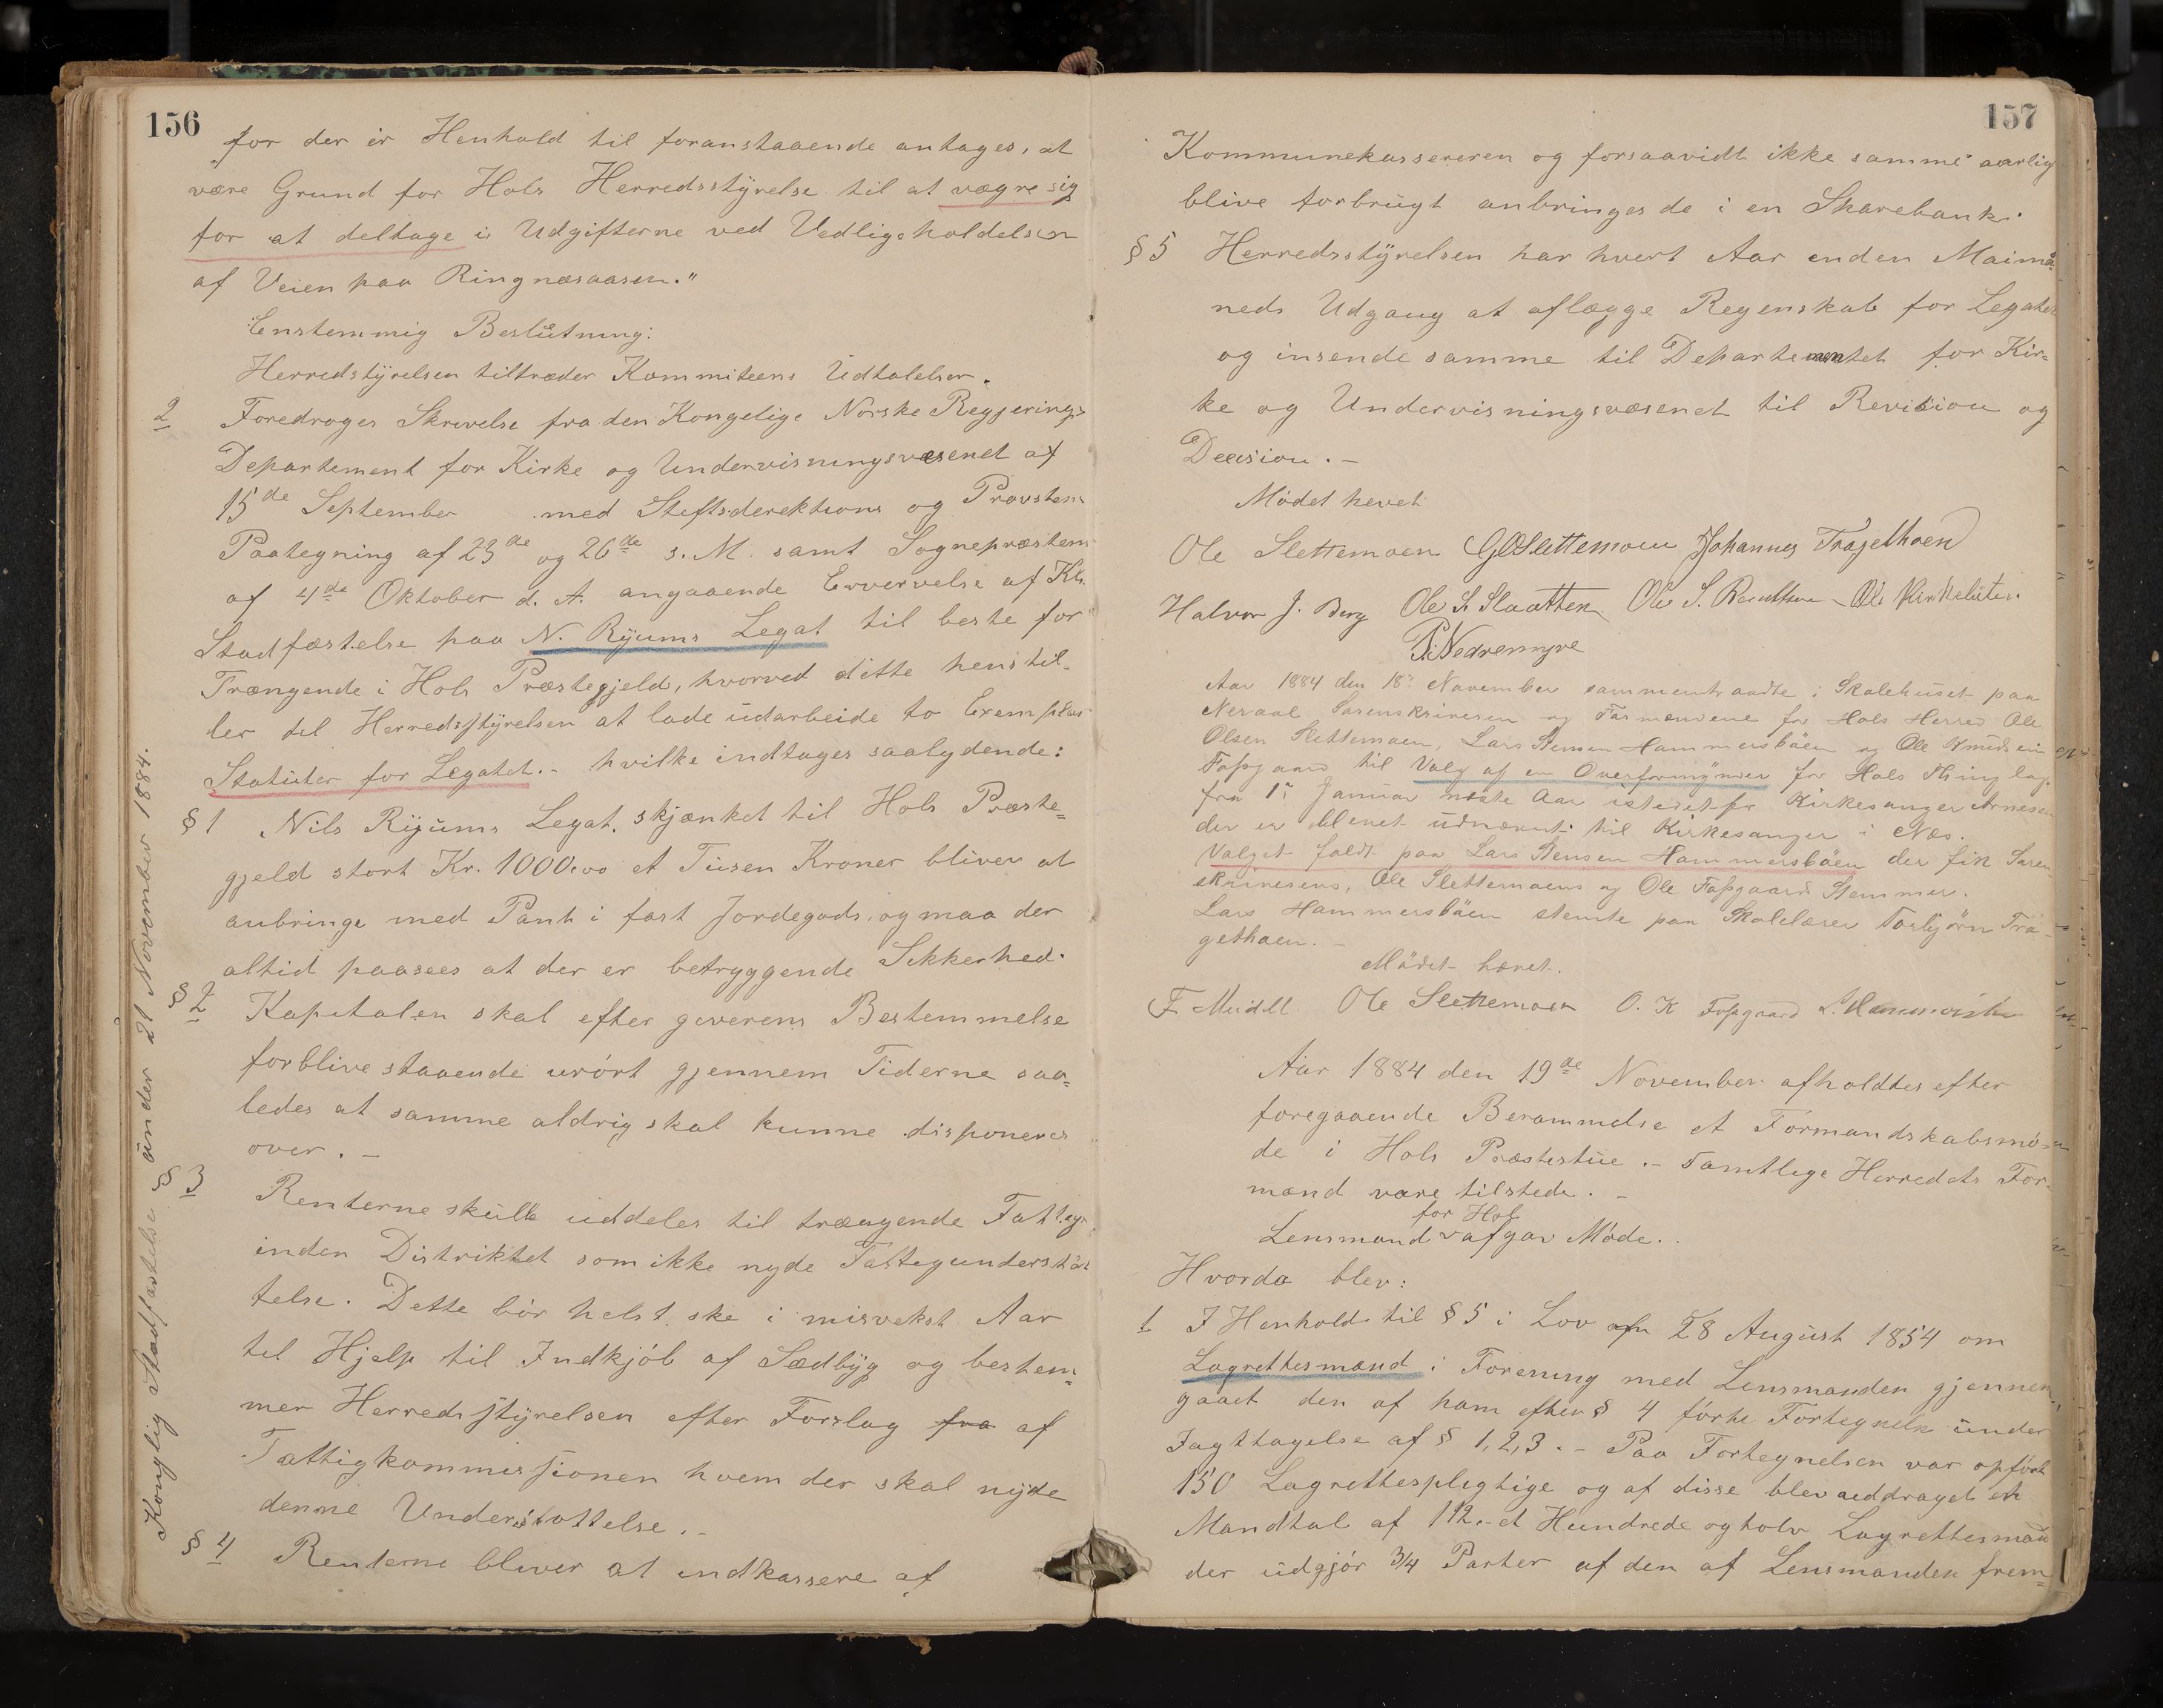 156
for der i Henhold til foranstaaende antages, at
være Grund for Hols Herredsstyrelse til at vægre sig
for at deltage i Udgifterne ved Vedligeholdelsen
af Veien paa Ringnæsaasen."
Enstemmig Beslutning:
Herredstyrelsen tiltræder Kommiteens Udtalelser.
2 Foredroges Skrivelse fra den Kongelige Norske Regjerings
Departement for Kirke og Undervisningsvæsenet af
15de September med Stiftsdirektions og Provstens
Paategning af 23de og 26de s. M. samt Sognepræstens
af 4de Oktober d. A. angaaende Erververlse af Kl.
Stadfæstelse paa N. Ryums Legat til beste for
Trængende i Hols Præstegjeld, hvorved dette henstil-
ler til Herredsstyrelsen at lade udarbeide to Exemplar
Statuter for Legatet.- hvilke indtages saalydende:
§ 1 Nils Ryums Legat, skjænket til Hols Præste=
gjeld stort Kr. 1000.00 et Tusen Kroner bliver at
anbringe med Pant i fast Jordegods, og maa der
altid paasees at der er betryggende Sikkerhed.
§ 2 Kapitalen skal efter giverens Bestemmelse
forblive staaende urørt gjennem Tiderne saa=
ledes at samme aldrig skal kunne disponeres
over. -
§ 3 Renterne skulle uddeles til trængende Fattige
inden Distriktet som ikke nyde Fattigunderstøt
telse. Dette bør helst ske i misvekst Aar
til Hjelp til Indkjøb af Sædbyg og bestem=
mer Herredsstyrelsen efter Forslag fra af
Fattigkommissionen hvem der skal nyde
denne Understøttelse. -
§ 4 Renterne bliver at indkassere af
Konglig Stadfæstelse under 21 November 1884.
157
Kommunekassereren og forsaavidt ikke samme aarlig
blive forbrugt anbringes de i en Sparebank.
§ 5 Herredsstyrelsen har hvert Aar inden Maimå=
neds Udgang at aflægge Regenskab for Legatet
og insende samme til Departementet for Kir=
ke og Undervisningsvæsenet til Revision og
Decision. -
Mødet hevet
Ole Slettemoen GOSlettemoen Johannes Tragethoen
Halvor J. Berg Ole S. Slaatten Ole S.
P. Nedremyre
Aar 1884 den 18de November sammentraadte i Skolehuset paa
Neraal Sorenskriveren og Formændene for Hols Herred Ole
Olsen Slettemoen, Lars Stensen Hammersbøen og Ole Knudsen
Fosgaard til Valg af en Overformynder for Hols Thinglag
fra 1ste Januar næste Aar istedetfor Kirkesanger Arnesen
der er blevet udnævnt til Kirkesanger i Næs.
Valget faldt paa Lars Stensen Hammersbøen der fik Soren
skriverens, Ole Slettemoens og Ole Fosgaards Stemmer.
Lars Hammersbøen stemte paa Skolelærer Torbjørn Tra-
gethoen. -
Mødet hævet.
F Meidell Ole Slettemoen O. K Fosgaard L. Hammersbøen
Aar 1884 den 19de November afholdtes efter
foregaaende Berammelse et Formandskabsmø=
de i Hols Præstestue. - Samtlige Herredets For-
mænd vare tilstede. -
for Hol
Lensmand v afgav Møde..
Hvorda blev:
1 I Henhold til § 5 i Lov af 28 August 1854 om
Lagrettesmænd i Forening med Lensmanden gjennem
gaaet den af ham efter § 4 førte Fortegnelse under
Iagttagelse af § 1, 2, 3. - Paa Fortegnelsen var opført
150 Lagrettespligtige og af disse blev uddraget et
Mandtal af 112.- et Hundrede og tolv Lagrettesmæn
der udgjør 3/4 Parter af den af Lensmanden frem=